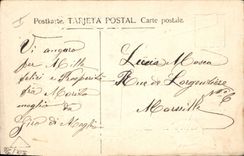 Postkarte. TARJETA POSTAL. Carte postale.
Vi auguro
per Mille
felici e Prosperità
fra Marito
moglie
di
Lucia Mosca
Rue de Largentière
No 6
Marseille